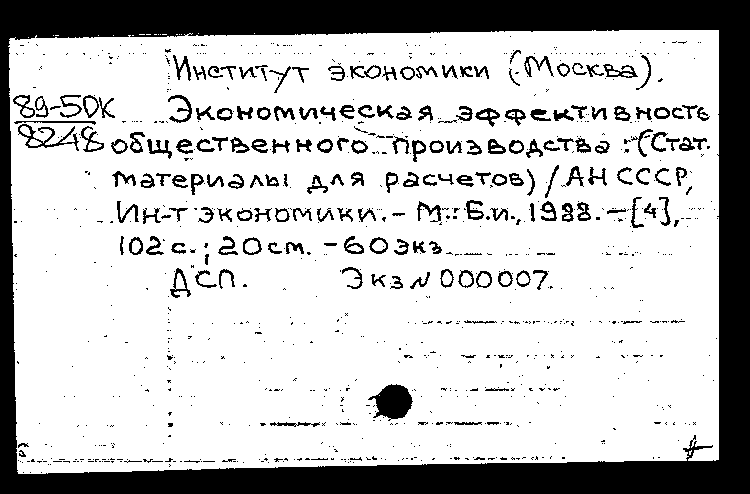 Институт экономики (Москва).
89-5ДК Экономическая эффективность
8248 общественного производства : (Стат.
материалы для расчетов) / АН СССР,
Ин-т экономики. – М.: Б.и., 1988. – [4],
102 с.; 20 см. – 60 экз
ДСП. Экз № 000007.